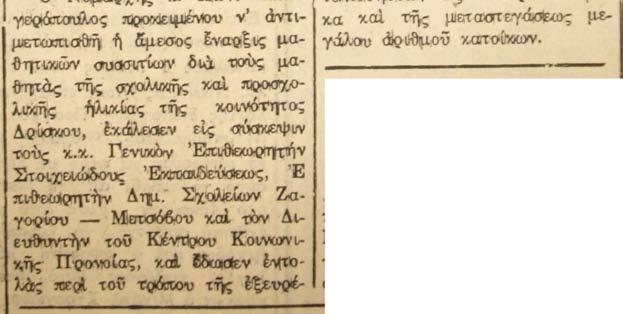 γεράπουλος προκειμένου ν' ἀντι-
μετωπισθῆ ἡ ἄμεσος ἔναρξις μα-
θητικῶν συσσιτίων διὰ τοὺς μα-
θητὰς τῆς σχολικῆς καὶ προσχο-
λικῆς ἡλικίας τῆς κοινότητος
Δρίσκου, ἐκάλεσεν εἰς σύσκεψιν
τοὺς κ.κ. Γενικὸν Ἐπιθεωρητὴν
Στοιχειώδους Ἐκπαιδεύσεως, Ἐ
πιθεωρητὴν Δημ. Σχολείων Ζα-
γορίου — Μετσόβου καὶ τὸν Δι-
ευθυντὴν τοῦ Κέντρου Κοινωνι-
κῆς Προνοίας, καὶ ἔδωσεν ἐντο-
λὰς περὶ τοῦ τρόπου τῆς ἐξευρέ-
κα καὶ τῆς μεταστεγάσεως με-
γάλου ἀριθμοῦ κατοίκων.